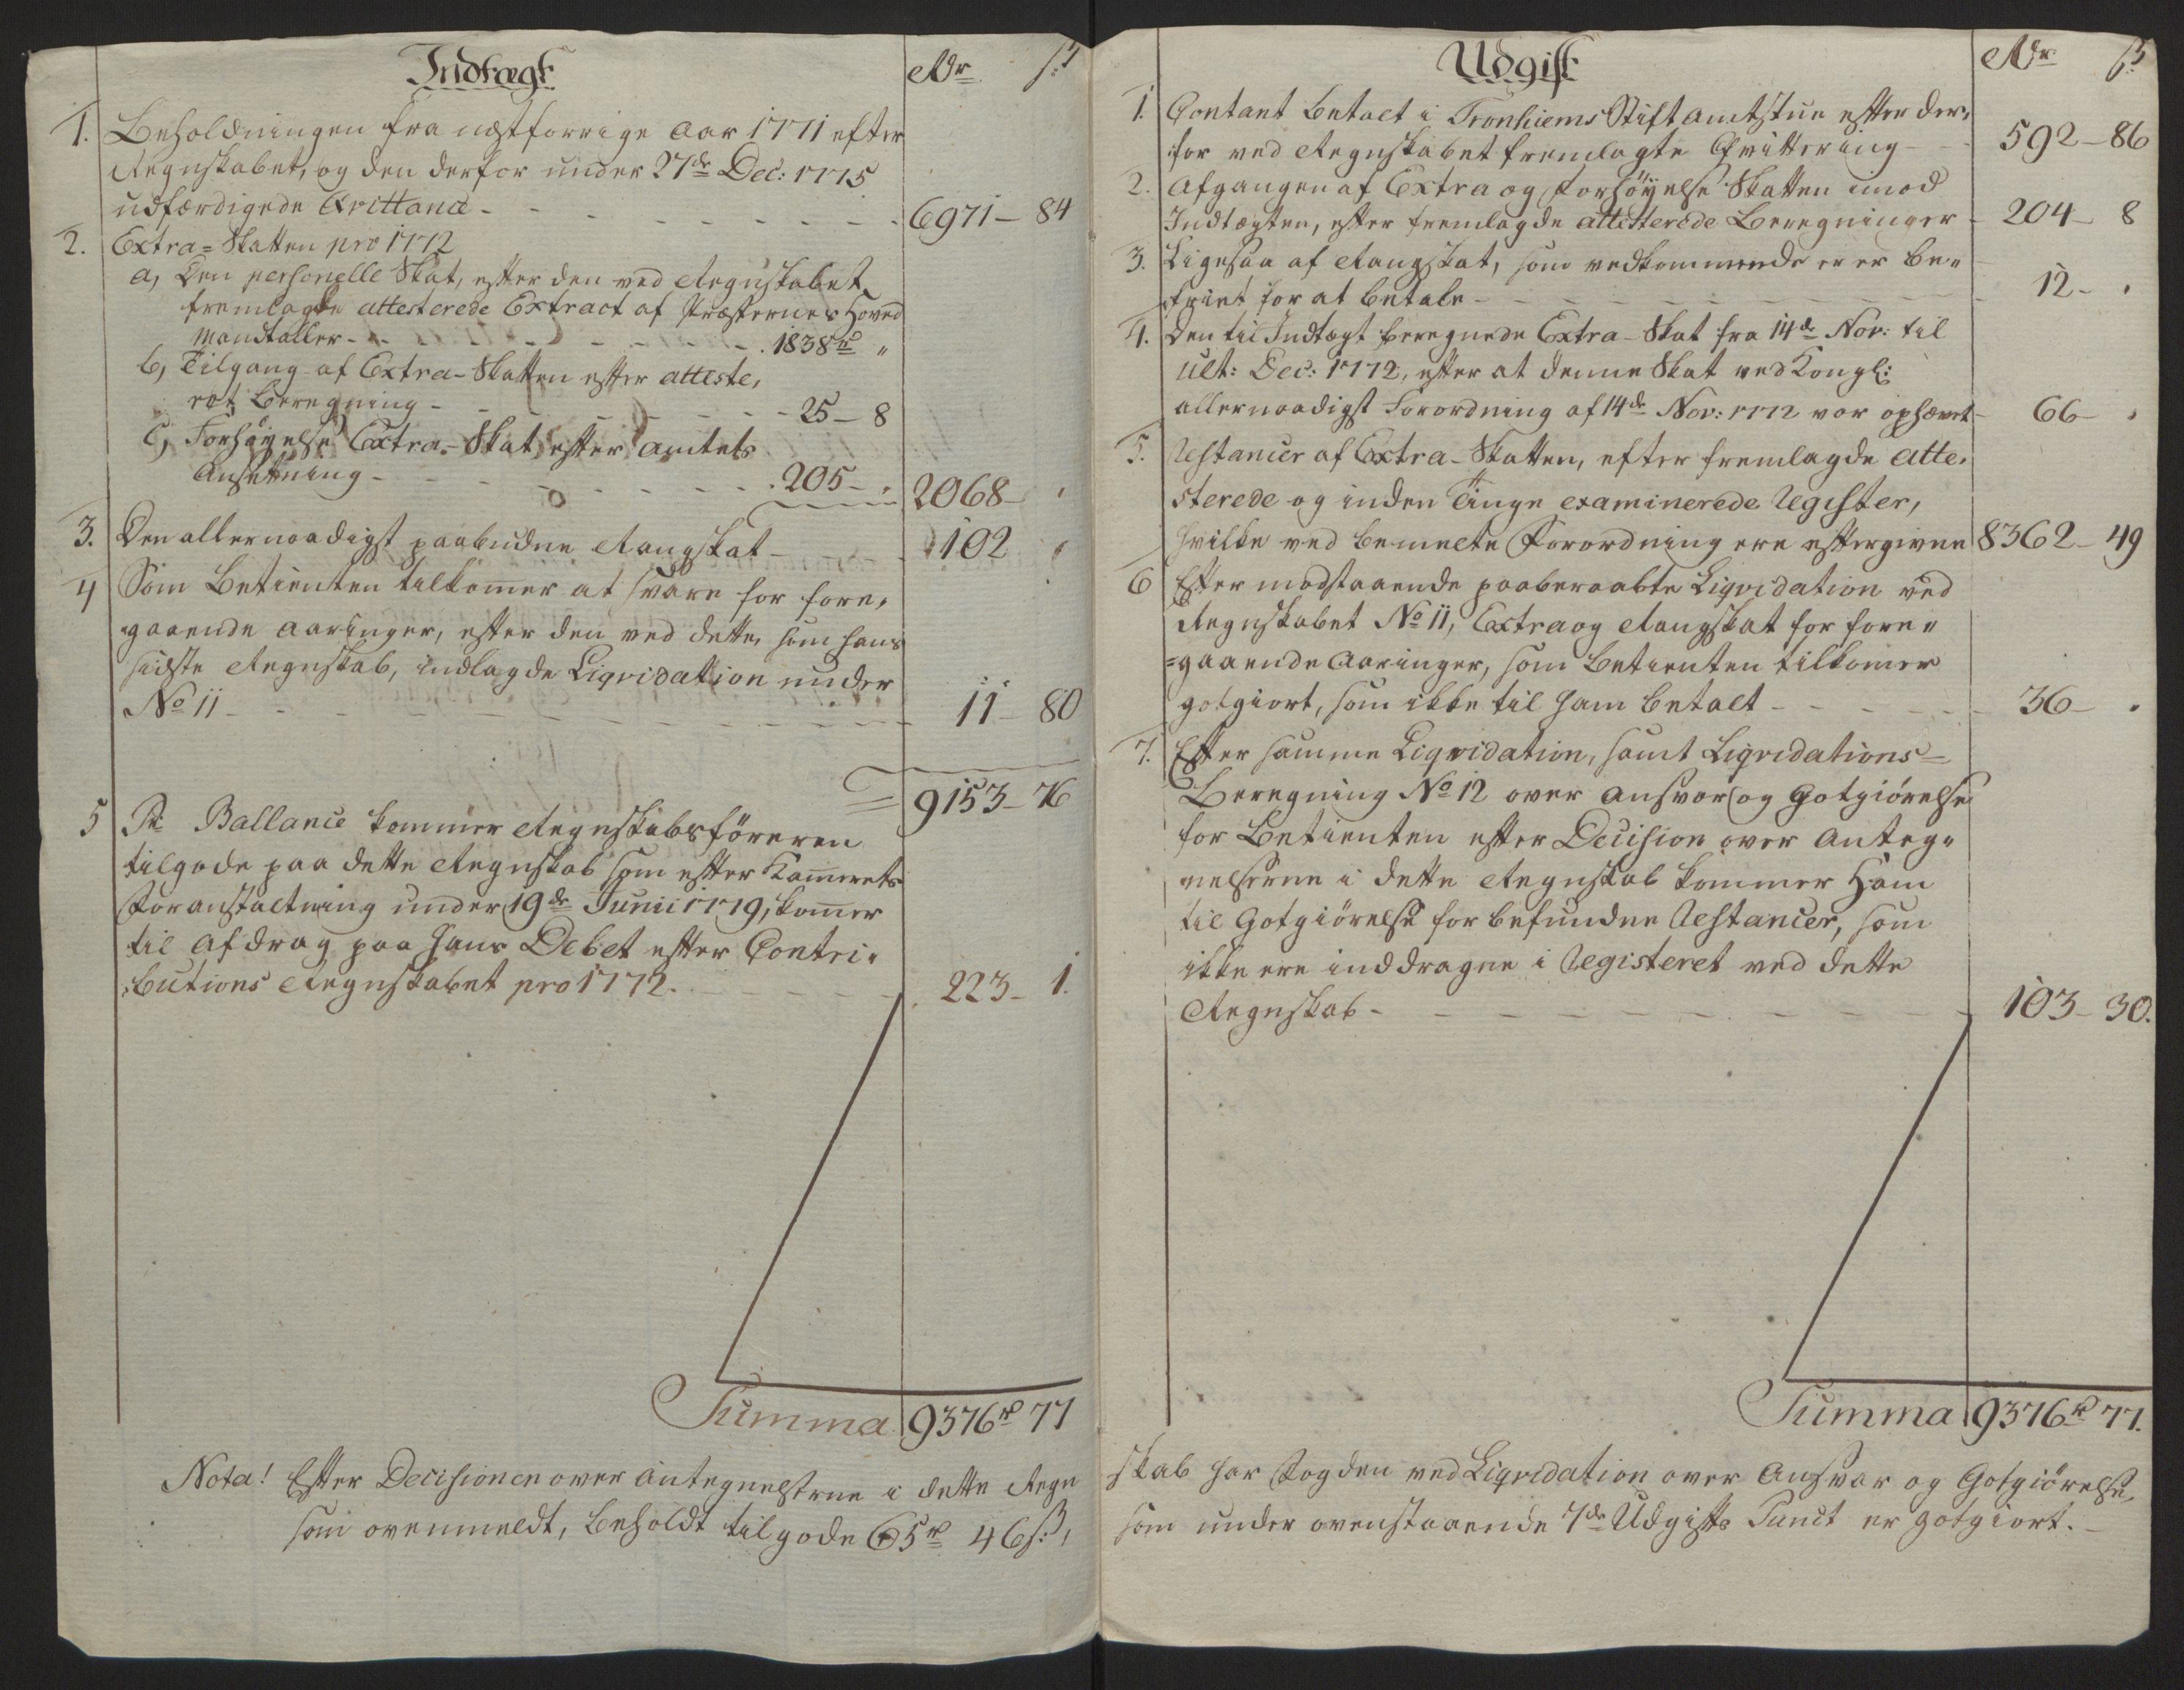 Indtægt
Rdr ß
1. Beholdningen fra nestforrige Aar 1771 efter
Regnskabet, og den derfor under 27de Dec: 1775
udfærdigede Qvittance - 6971 - 84
2. Extra-Skatten pro 1772
a, Den personelle Skat, efter den ved Regnskabet
fremlagte attesterede Extract af Præsternes Hoved
Mandtaller - 1838rd "
b, Tilgang af Extra-Skatten efter atteste,
ret Beregning - 25 - 8
C, Forhøyelse Extra-Skat efter Amtets
Ansættning - 205 - , 2068 - ,
3. Den allernaadigst paabudne Rangskat - 102 ,
4 Som Betienten tilkommer at svare for fore,
gaaende Aaringer, efter den ved dette, som hans
sidste Regnskab, indlagde Liqvidation under
No 11 - 11 - 80
= 9153 - 76
5 Pr Ballance kommer Regnskabsføreren
tilgode paa dette Regnskab som efter Kammerets
Foranstaltning under 19de Junii 1779, kommer
til Afdrag paa hans Debet efter Contri,
butions Regnskabet pro 1772. - 223 - 1.
Summa 9376rd 77
Nota! Efter Decisionen over Antegnelserne i dette Regn
som ovenmeldt, beholdt tilgode 65rd 46ß,
Udgift
Rdr ß
1. Contant betalt i Tronhiems Stiftamtstue efter der,
for ved Regnskabet fremlagte Qvittering - 592 - 86
2. Afgangen af Extra og Forhøyelse Skatten imod
Indtægten, efter fremlagde attesterede Beregninger - 204 - 8
3. Ligesaa af Rangskat, som vedkommende er er be"
friet for at betale - 12 - .
4. Den til Indtægt beregnede Extra-Skat fra 14de Nov: til
ult: Dec: 1772, efter at denne Skat ved Kongl:
allernaadigst Forordning af 14de Nov: 1772 var ophævet - 66 - ,
5. Restancer af Extra-Skatten, efter fremlagde atte,
sterede og inden Tinge examinerede Register,
hvilke ved bemelte Forordning ere eftergivne 8362 - 49
6 Efter modstaaende paaberaabte Liqvidation ved
Regnskabet No 11, Extra og Rangskat for fore"
=gaaende Aaringer, som Betienten tilkommer
gotgiort, som ikke til ham betalt - 36 - .
7. Efter samme Liqvidation, samt Liqvidations-
Beregning No 12 over Ansvar og Gotgiørelse
for Betienten efter Decision over Anteg"
nelserne i dette Regnskab kommer Ham
til Gotgiørelse for befundne Restancer, som
ikke ere inddragne i Registeret ved dette
Regnskab - 103 - 30.
Summa 9376rd 77.
skab har Fogden ved Liqvidation over Ansvar og Gotgiørelse,
som under ovenstaaende 7de Udgifts Punct er gotgiort. -